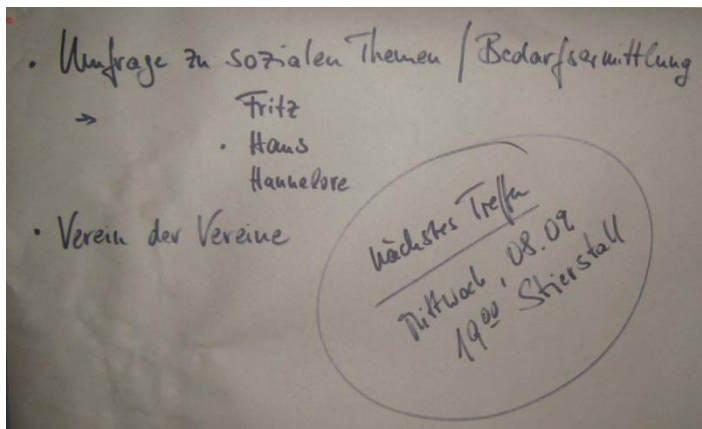 • Umfrage zu sozialen Themen / Bedarfsermittlung
→ Fritz
• Hans
Hannelore
• Verein der Vereine
nächstes Treffen
Mittwoch, 08.09
19⁰⁰ Stierstall